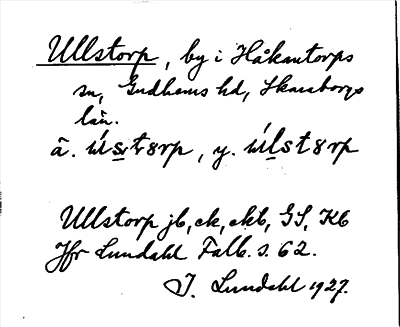 Ullstorp, by i Håkantorps
sn, Gudhems hd, Skaraborgs
län.
ä. ús̲tørp, y. úl̲størp
Ullstorp jb, ek, ekb, GS, Kb
Jfr Lundahl Falb. s. 62.
I. Lundahl 1927.